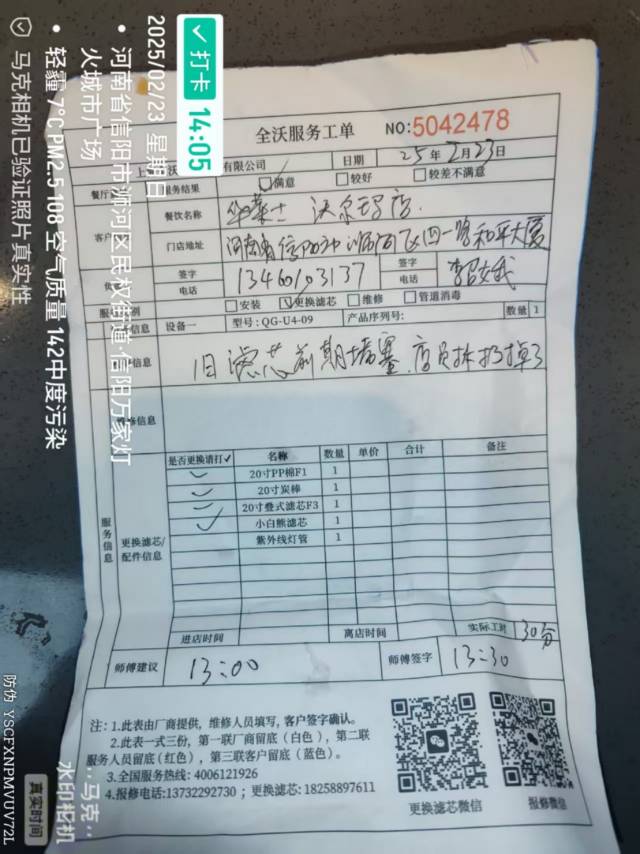 打卡 14:05
2025/02/23 星期日
河南省信阳市浉河区民权街道·信阳万家灯
火城市广场
轻霾 7°C PM2.5 108 空气质量 142中度污染
马克相机已验证照片真实性
全沃服务工单 NO:5042478
有限公司 日期 25年2月23日
服务结果 满意 较好 较差不满意
餐饮名称
门店地址
签字 签字
电话 13460103137 电话
安装 更换滤芯 维修 管道消毒
设备一 型号:QG-U4-09 产品序列号: 数量 1
旧滤芯前期堵塞,店员扔掉了
是否更换请打✓ 名称 数量 单价 合计 备注
✓ 20寸PP棉F1 1
✓ 20寸炭棒 1
✓ 20寸叠式滤芯F3 1
✓ 小白熊滤芯 1
紫外线灯管 1
服务信息
更换滤芯/
配件信息
进店时间 离店时间 实际工时 30分
师傅建议 13:00 师傅签字 13:30
注:1.此表由厂商提供,维修人员填写,客户签字确认。
2.此表一式三份,第一联厂商留底(白色),第二联
服务人员留底(红色),第三联客户留底(蓝色)。
3.全国服务热线:4006121926
4.报修电话:13732292730;更换滤芯:18258897611
更换滤芯微信 报修微信
马克
水印相机
真实时间
防伪 YSCFXNPMVUV72L